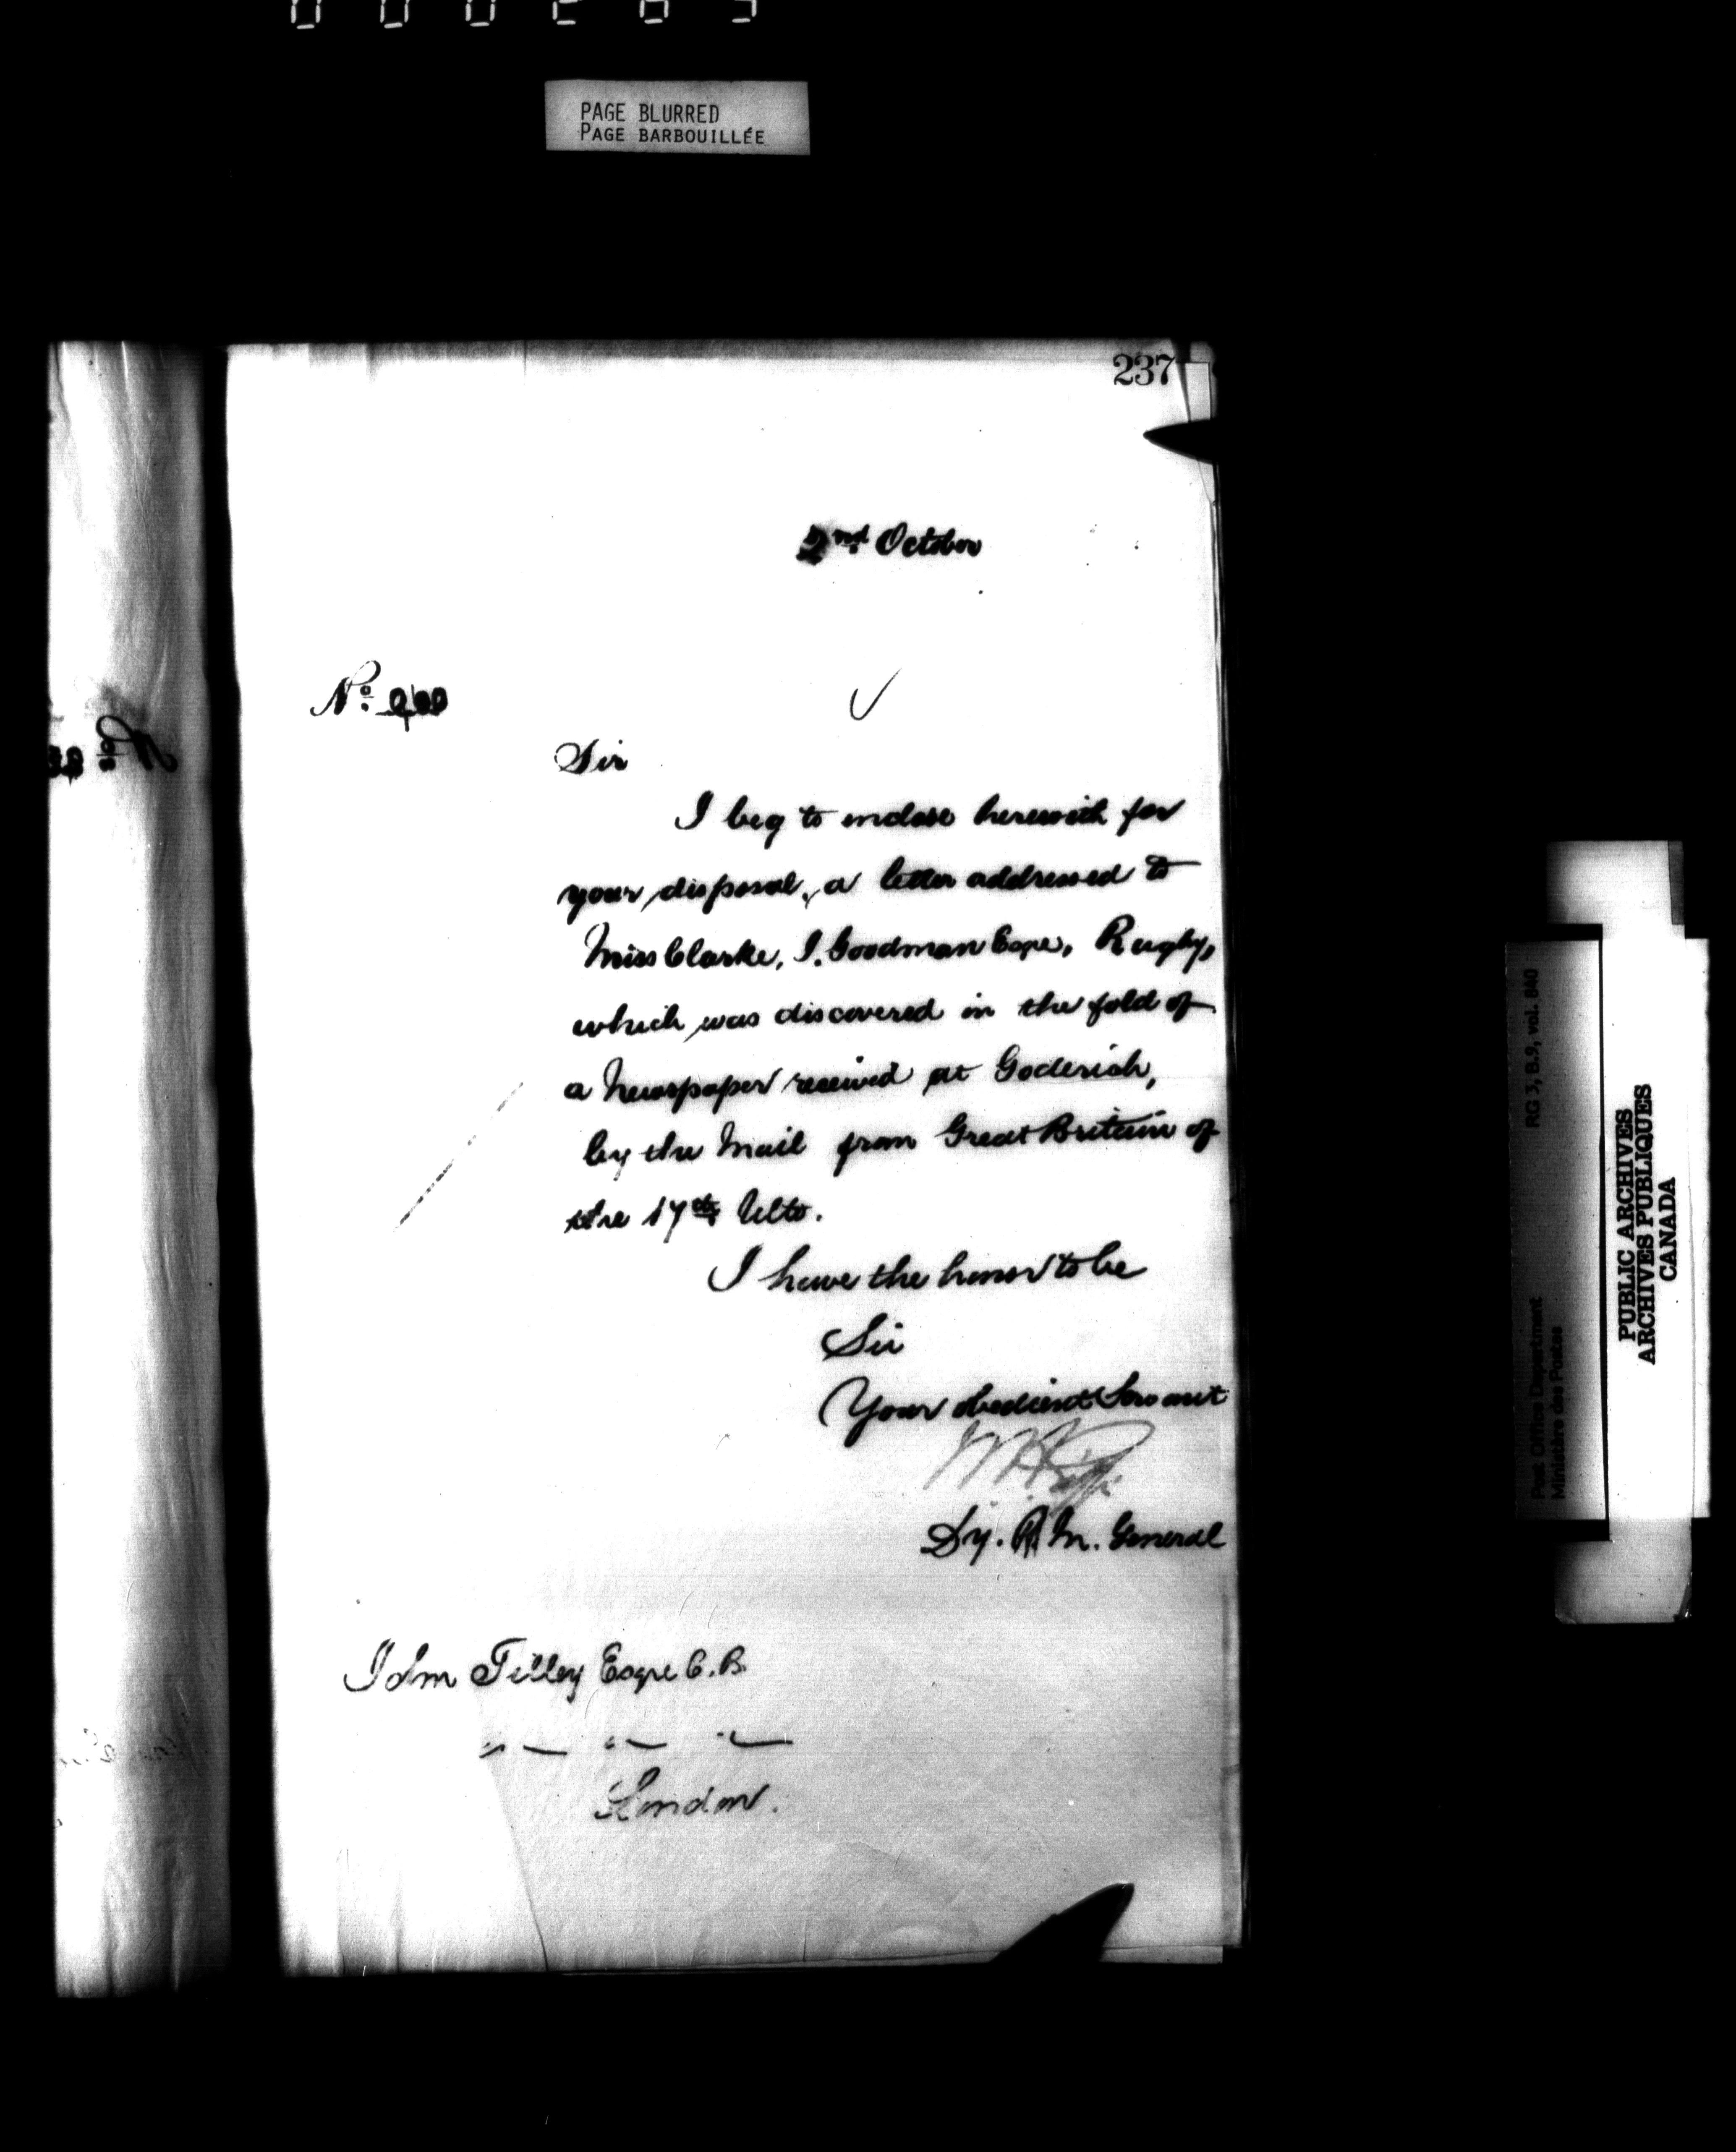 PAGE BLURRED
PAGE BARBOUILLÉE
237
2nd October
No.
Sir
I beg to enclose herewith for
your disposal, a letter addressed to
Miss Clarke, I. Goodman Esqre, Rugby,
which was discovered in the fold of
a Newspaper received at Goderich,
by the Mail from Great Britain of
the 17th Ulto.
I have the honor to be
Sir
Your obedient Servant
Dy. P. M. General
John Tilley Esqre C.B.
London.
RG 3, B.9, vol. 840
Post Office Department
Ministère des Postes
PUBLIC ARCHIVES
ARCHIVES PUBLIQUES
CANADA